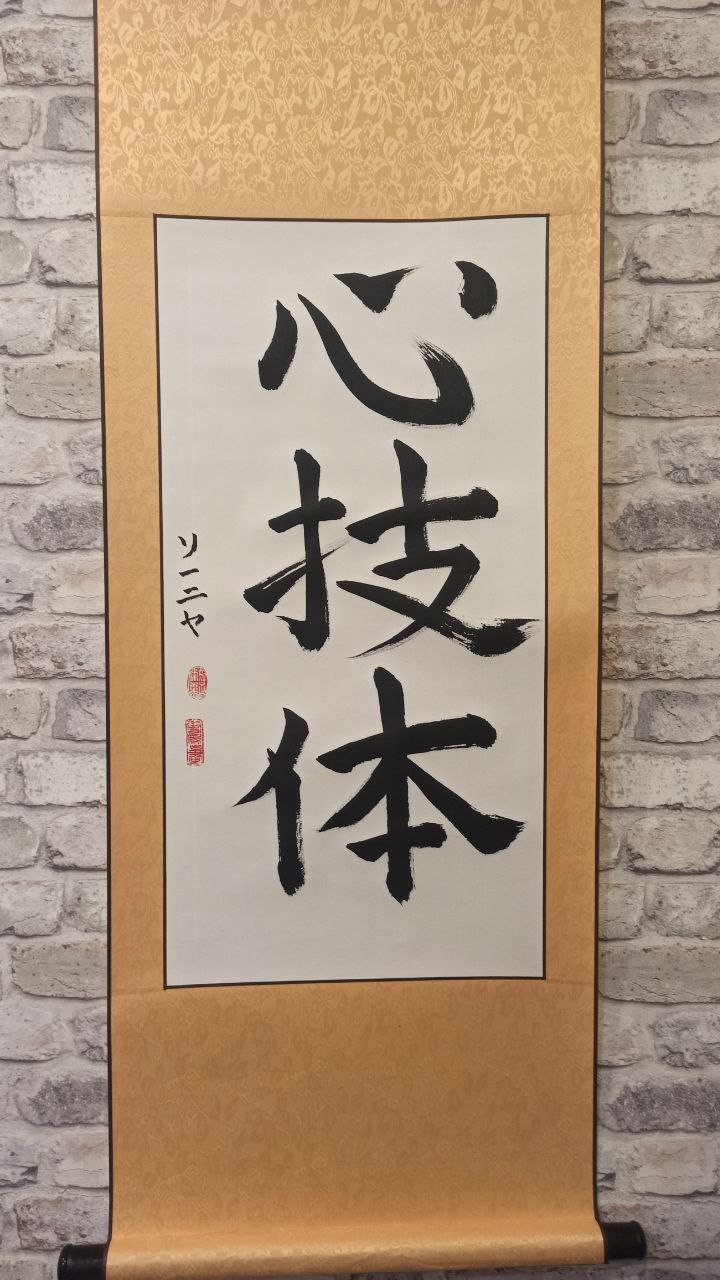 心技体
ソーニヤ